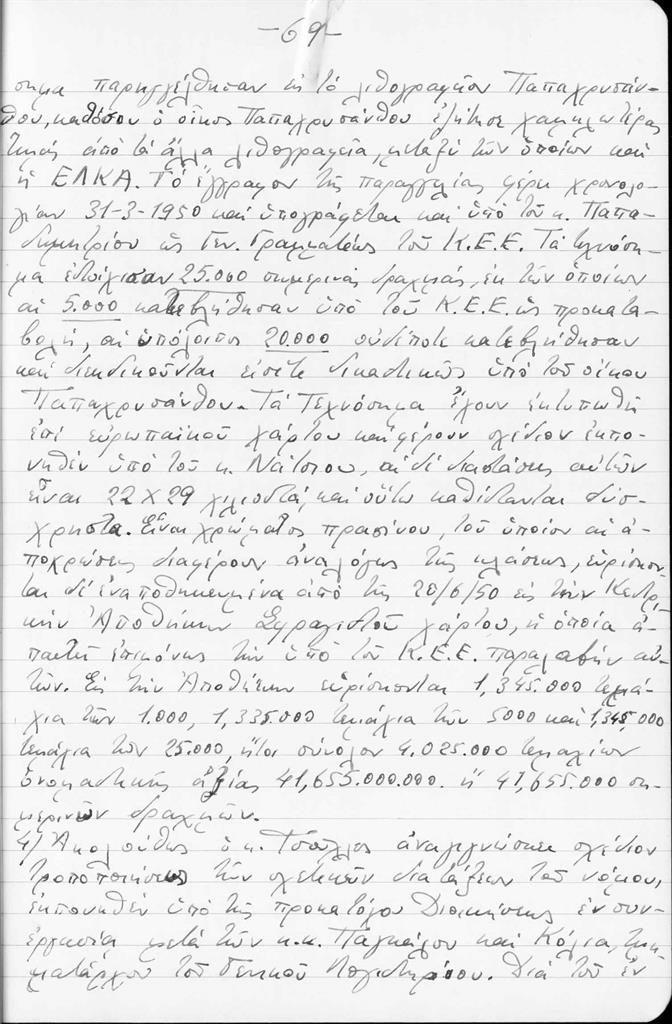 -69-
σημα παρηγγέλθησαν εἰς τό λιθογραφεῖον Παπαχρυσάν-
θου, καθόσον ὁ οἶκος Παπαχρυσάνθου ἐζήτησε χαμηλωτέρας
τιμάς ἀπό τά ἄλλα λιθογραφεῖα, μεταξύ τῶν ὁποίων καί
ἡ ΕΛΚΑ. Τό ἔγγραφον τῆς παραγγελίας φέρει χρονολο-
γίαν 31-3-1950 καί ὑπογράφεται καί ὑπό τοῦ κ. Παπα-
δημητρίου ὡς Γεν. Γραμματέως τοῦ Κ.Ε.Ε. Τά τεχνόση-
μα ἐστοίχισαν 25.000 σημερινάς δραχμάς, ἐκ τῶν ὁποίων
αἱ 5.000 κατεβλήθησαν ὑπό τοῦ Κ.Ε.Ε. ὡς προκατα-
βολή, αἱ ὑπόλοιποι 20.000 οὐδέποτε κατεβλήθησαν
καί διεκδικοῦνται εἰσέτι δικαστικῶς ὑπό τοῦ οἴκου
Παπαχρυσάνθου. Τά Τεχνόσημα ἔχουν ἐκτυπωθῆ
ἐπί εὐρωπαϊκοῦ χάρτου καί φέρουν σχέδιον ἐκπο-
νηθέν ὑπό τοῦ κ. Νάτσιου, αἱ δέ διαστάσεις αὐτῶν
εἶναι 22 Χ 29 χιλιοστά, καί οὕτω καθίστανται δύσ-
χρηστα. Εἶναι χρώματος πρασίνου, τοῦ ὁποίου αἱ ἀ-
ποχρώσεις διαφέρουν ἀναλόγως τῆς κλάσεως, εὑρίσκον-
ται δέ ἐναποθηκευμένα ἀπό τῆς 20/6/50 εἰς τήν Κεντρι-
κήν Ἀποθήκην Σφραγιστοῦ χάρτου, ἡ ὁποία ἀ-
παιτεῖ ἐπιμόνως τήν ὑπό τοῦ Κ.Ε.Ε. παραλαβήν αὐ-
τῶν. Εἰς τήν Ἀποθήκην εὑρίσκονται 1,345.000 τεμά-
χια τῶν 1.000, 1,335.000 τεμάχια τῶν 5000 καί 1,345,000
τεμάχια τῶν 25.000, ἤτοι σύνολον 4.025.000 τεμαχίων
ὀνομαστικῆς ἀξίας 41,655.000.000. ἤ 41,655.000 ση-
μερινῶν δραχμῶν.
4) Ἀκολούθως ὁ κ. Τσούλλος ἀναγιγνώσκει σχέδιον
τροποποιήσεως τῶν σχετικῶν διατάξεων τοῦ νόμου,
ἐκπονηθέν ὑπό τῆς προκατόχου Διοικήσεως ἐν συν-
εργασίᾳ μετά τῶν κ.κ. Παγκάλου καί Κόλια, τμη-
ματάρχου τοῦ Γενικοῦ Λογιστηρίου. Διά τοῦ ἐν